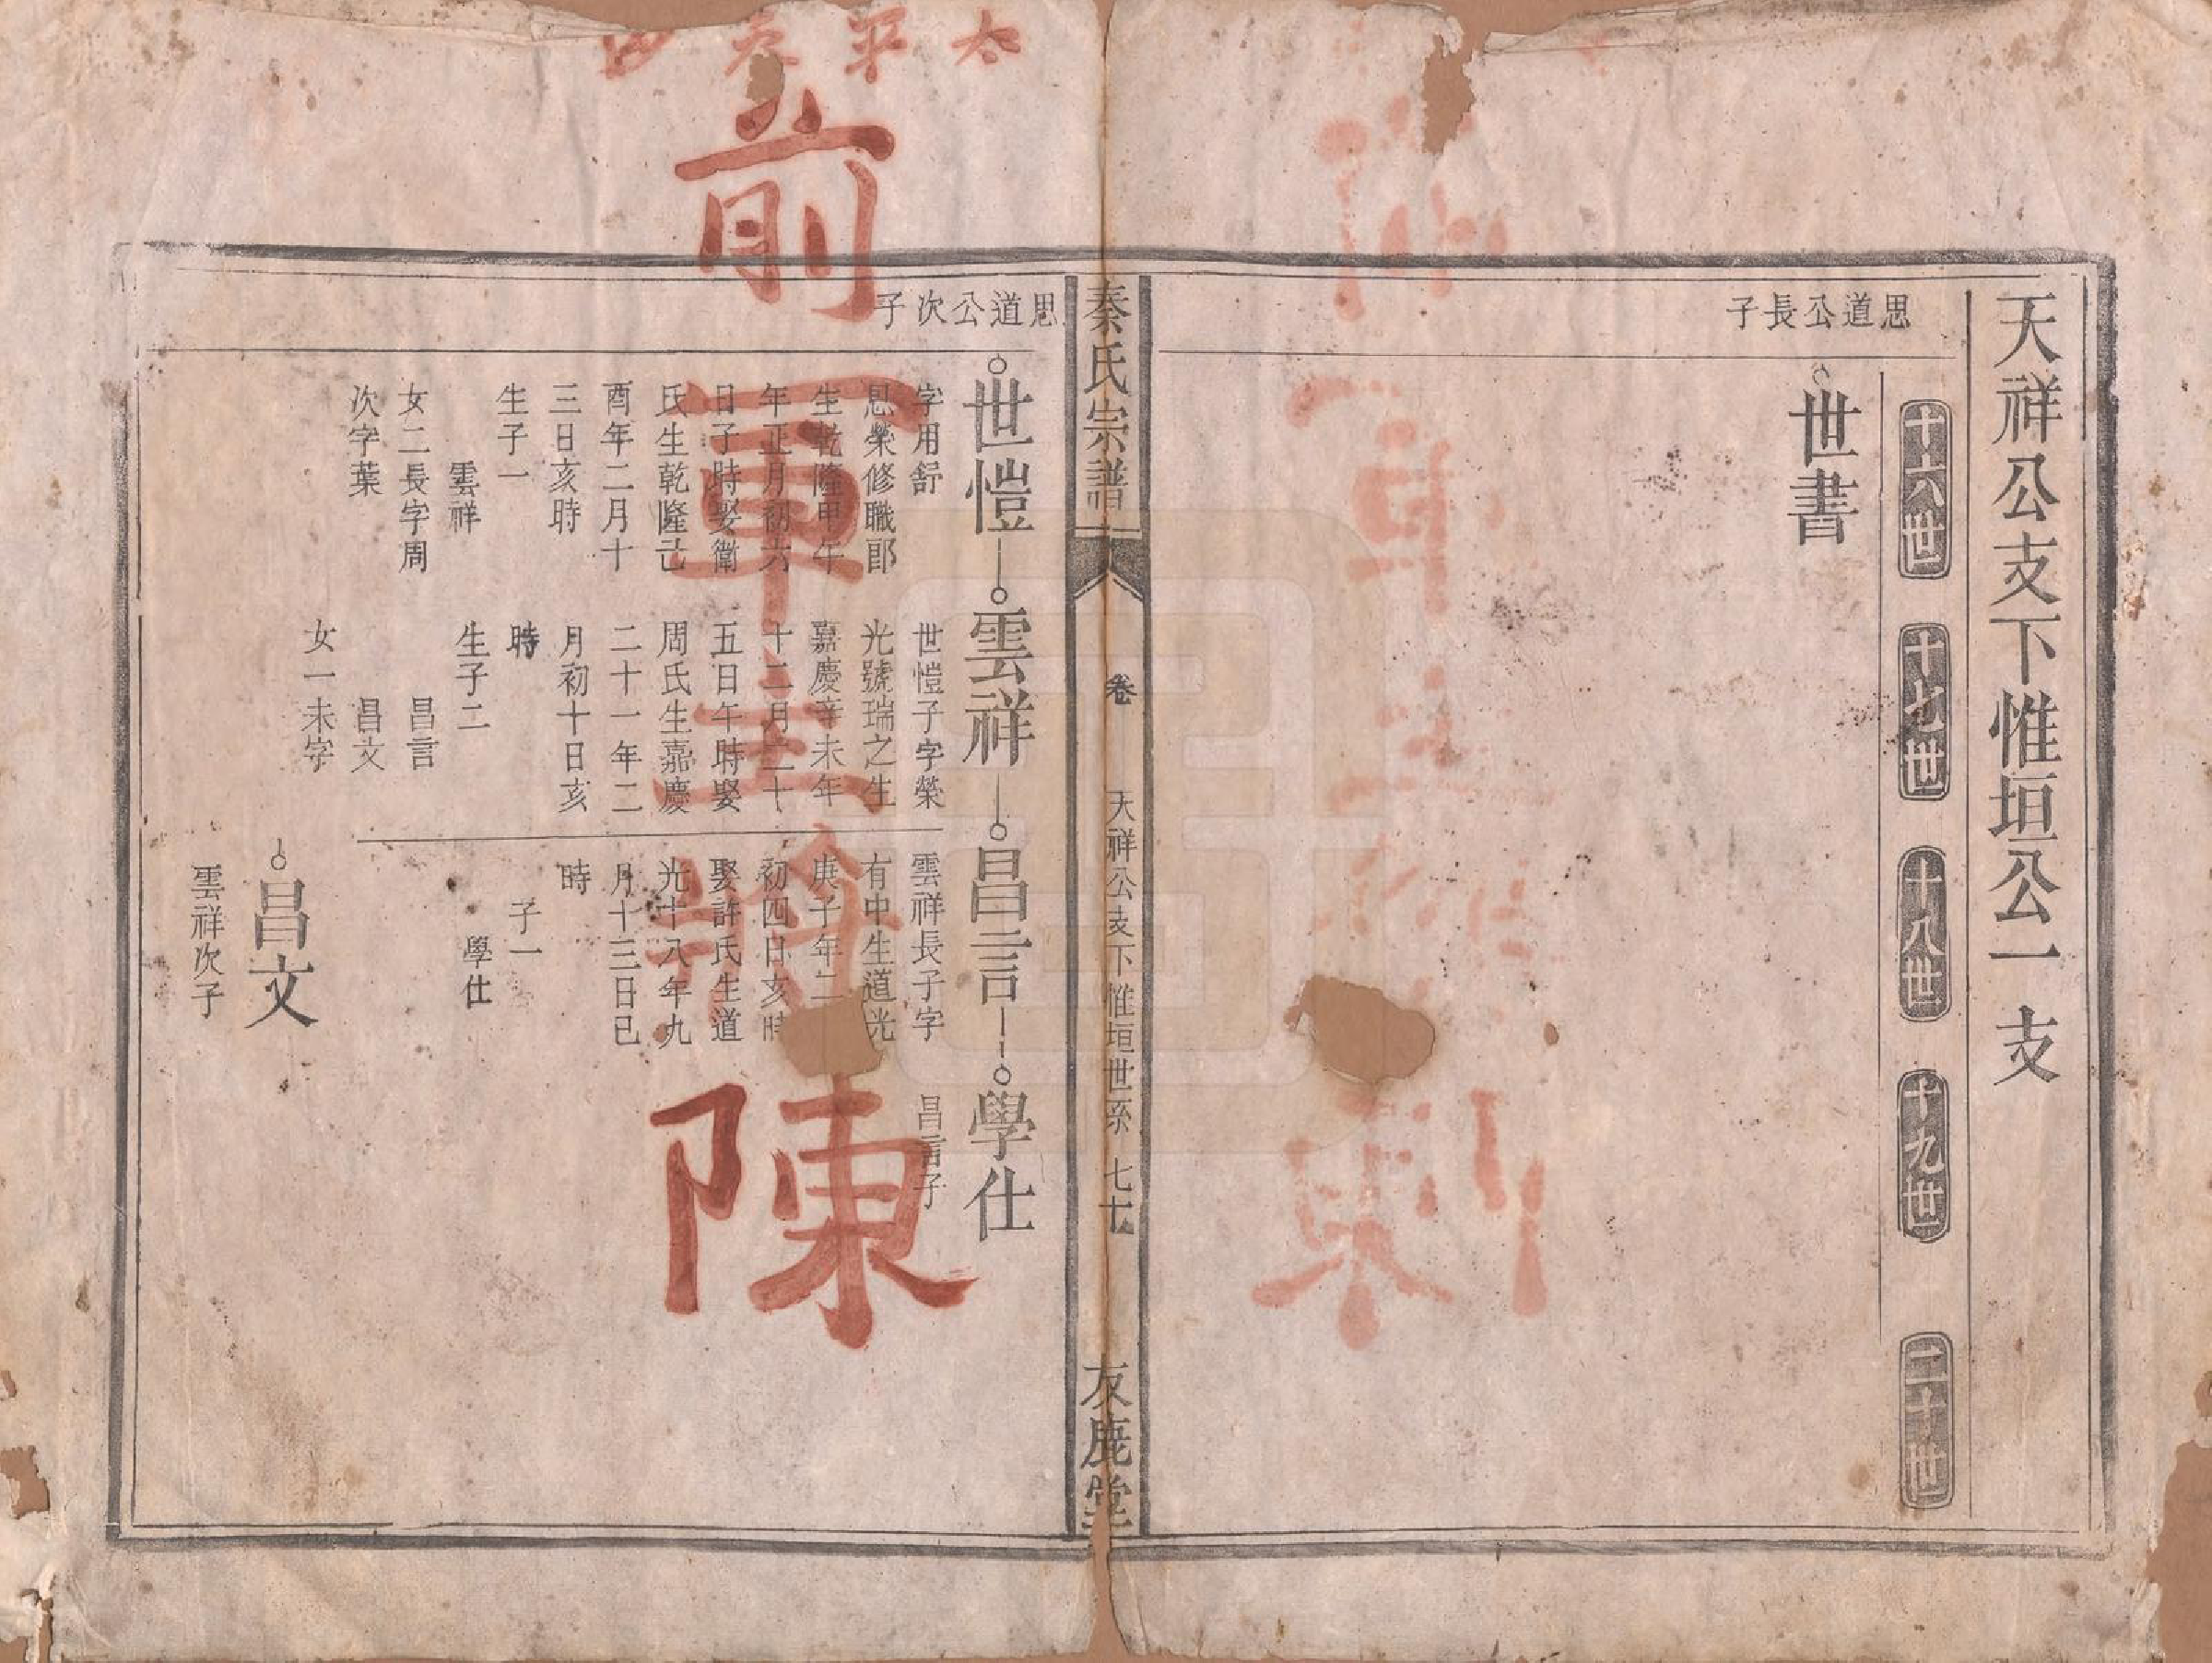 天祥公支下惟垣公一支
十六世
十七世
十八世
十九世
二十世
思道公長子
世書
秦氏宗譜
卷
天祥公支下惟垣世系
七十
友鹿堂
思道公次子
世愷
字用舒
恩榮修職郎
生乾隆甲午
年正月初六
日子時娶衛
氏生乾隆己
酉年二月十
三日亥時
生子一
雲祥
女二長字周
次字葉
雲祥
世愷子字榮
光號瑞之生
嘉慶辛未年
十二月二十
五日午時娶
周氏生嘉慶
二十一年二
月初十日亥
時
生子二
昌言
昌文
女一未字
昌言
雲祥長子字
有中生道光
庚子年二
初四日亥時
娶許氏生道
光十八年九
月十三日巳
時
子一
學仕
學仕
昌言子
昌文
雲祥次子
太平
前軍主將陳